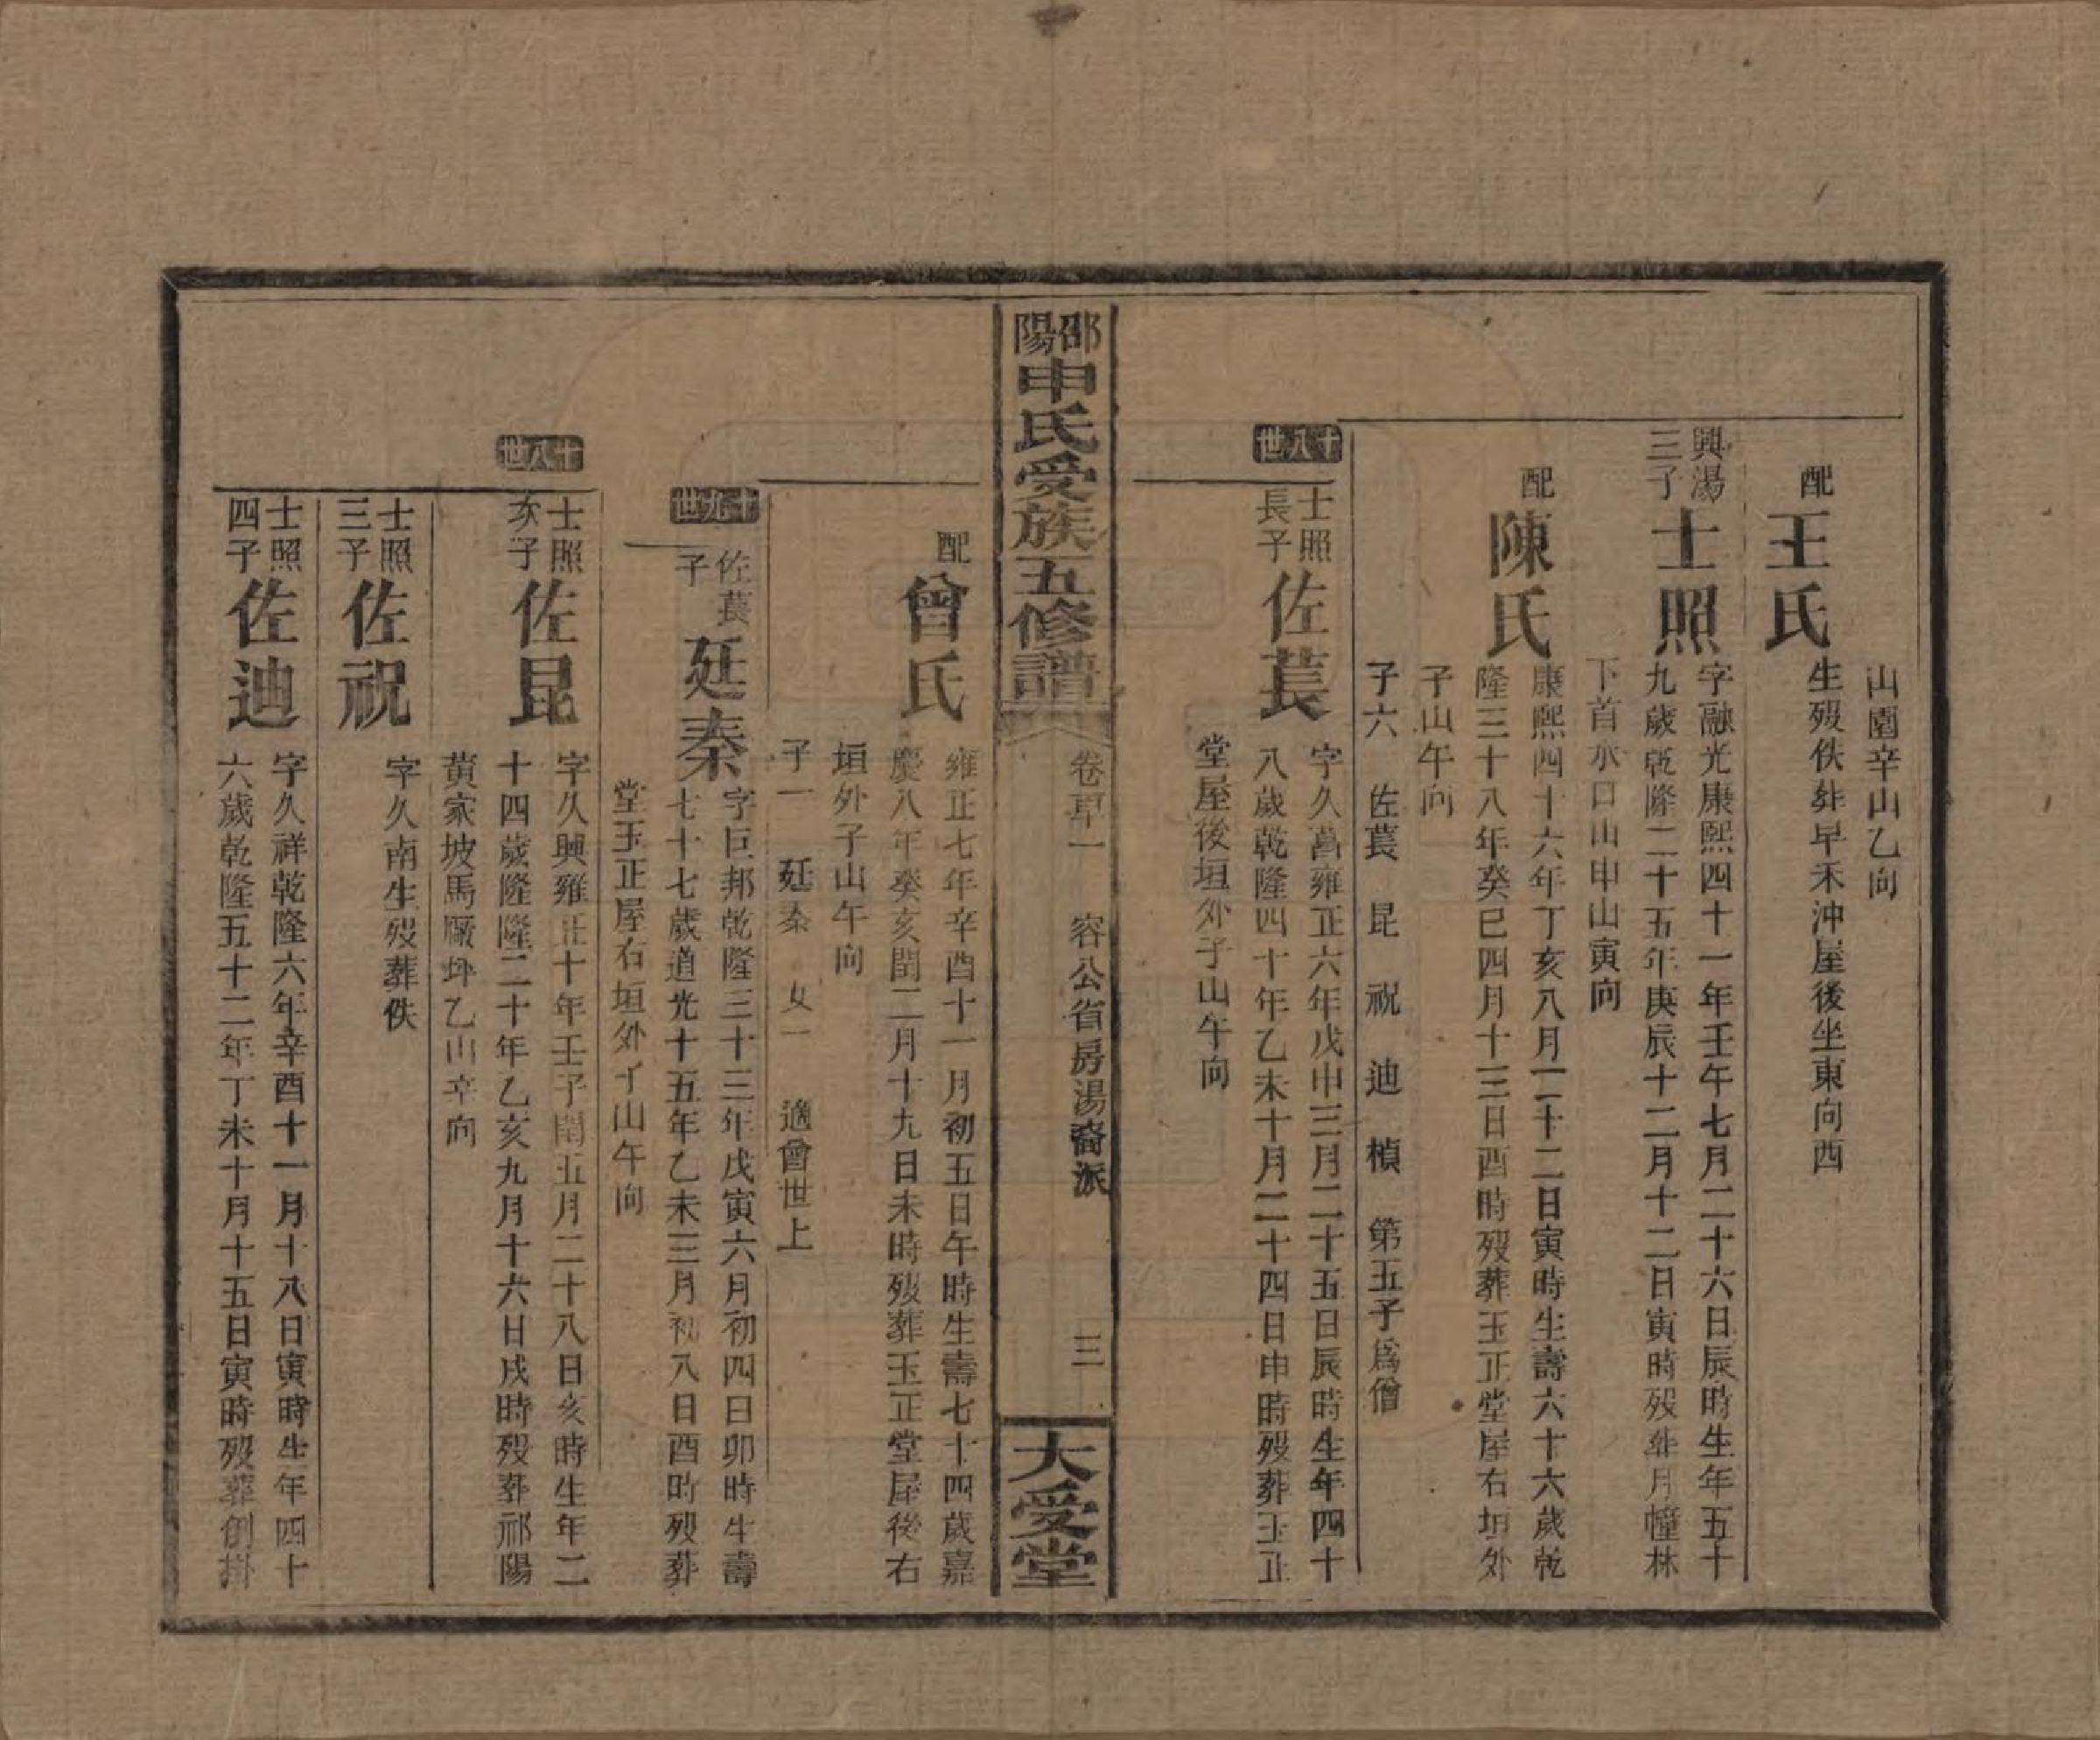 山園辛山乙向
配
王氏
生歿佚葬早禾沖屋後坐東向西
興湯
三子
士照
字融光康熙四十一年壬午七月二十六日辰時生年五十
九歲乾隆二十五年庚辰十二月十二日寅時歿葬月幢林
下首水口山申山寅向
配
陳氏
康熙四十六年丁亥八月二十二日寅時生壽六十六歲乾
隆三十八年癸巳四月十三日酉時歿葬玉正堂屋右垣外
子山午向
子六 佐萇 昆 祝 迪 楨 第五子爲僧
十八世
士照
長子
佐萇
字久菖雍正六年戊申三月二十五日辰時生年四十
八歲乾隆四十年乙未十月二十四日申時歿葬玉正
堂屋後垣外子山午向
邵陽申氏受族五修譜
卷 一
容公省房湯裔派
三
大受堂
配
曾氏
雍正七年辛酉十一月初五日午時生壽七十四歲嘉
慶八年癸亥閏二月十九日未時歿葬玉正堂屋後右
垣外子山午向
子一 廷秦 女一 適曾世上
十九世
佐萇
子
廷秦
字巨邦乾隆三十三年戊寅六月初四日卯時生壽
七十七歲道光十五年乙未三月初八日酉時歿葬
堂玉正屋右垣外子山午向
十八世
士照
次子
佐昆
字久興雍正十年壬子閏五月二十八日亥時生年二
十四歲隆隆二十年乙亥九月十六日戌時歿葬祁陽
黃家坡馬厰坪乙山辛向
士照
三子
佐祝
字久南生歿葬佚
士照
四子
佐迪
字久祥乾隆六年辛酉十一月十八日寅時生年四十
六歲乾隆五十二年丁未十月十五日寅時歿葬倒掛